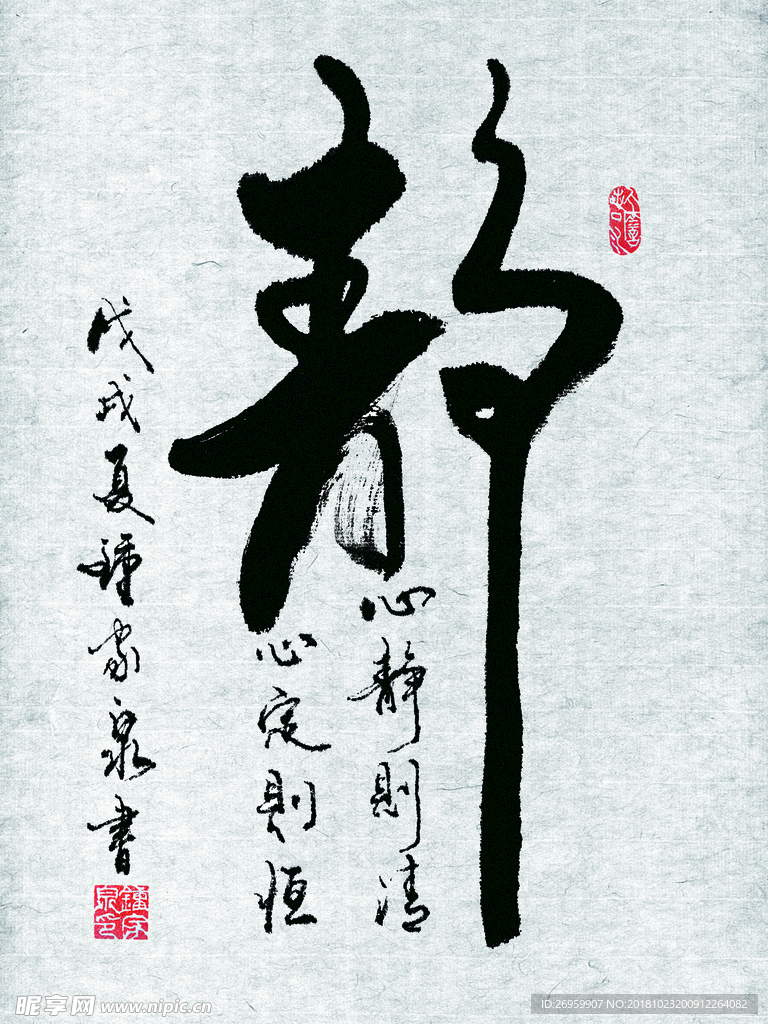 静
心静则清
心定则恒
戊戌夏钟家泉书
昵享网 www.nipic.cn
ID:26959907 NO:20181023200912264082